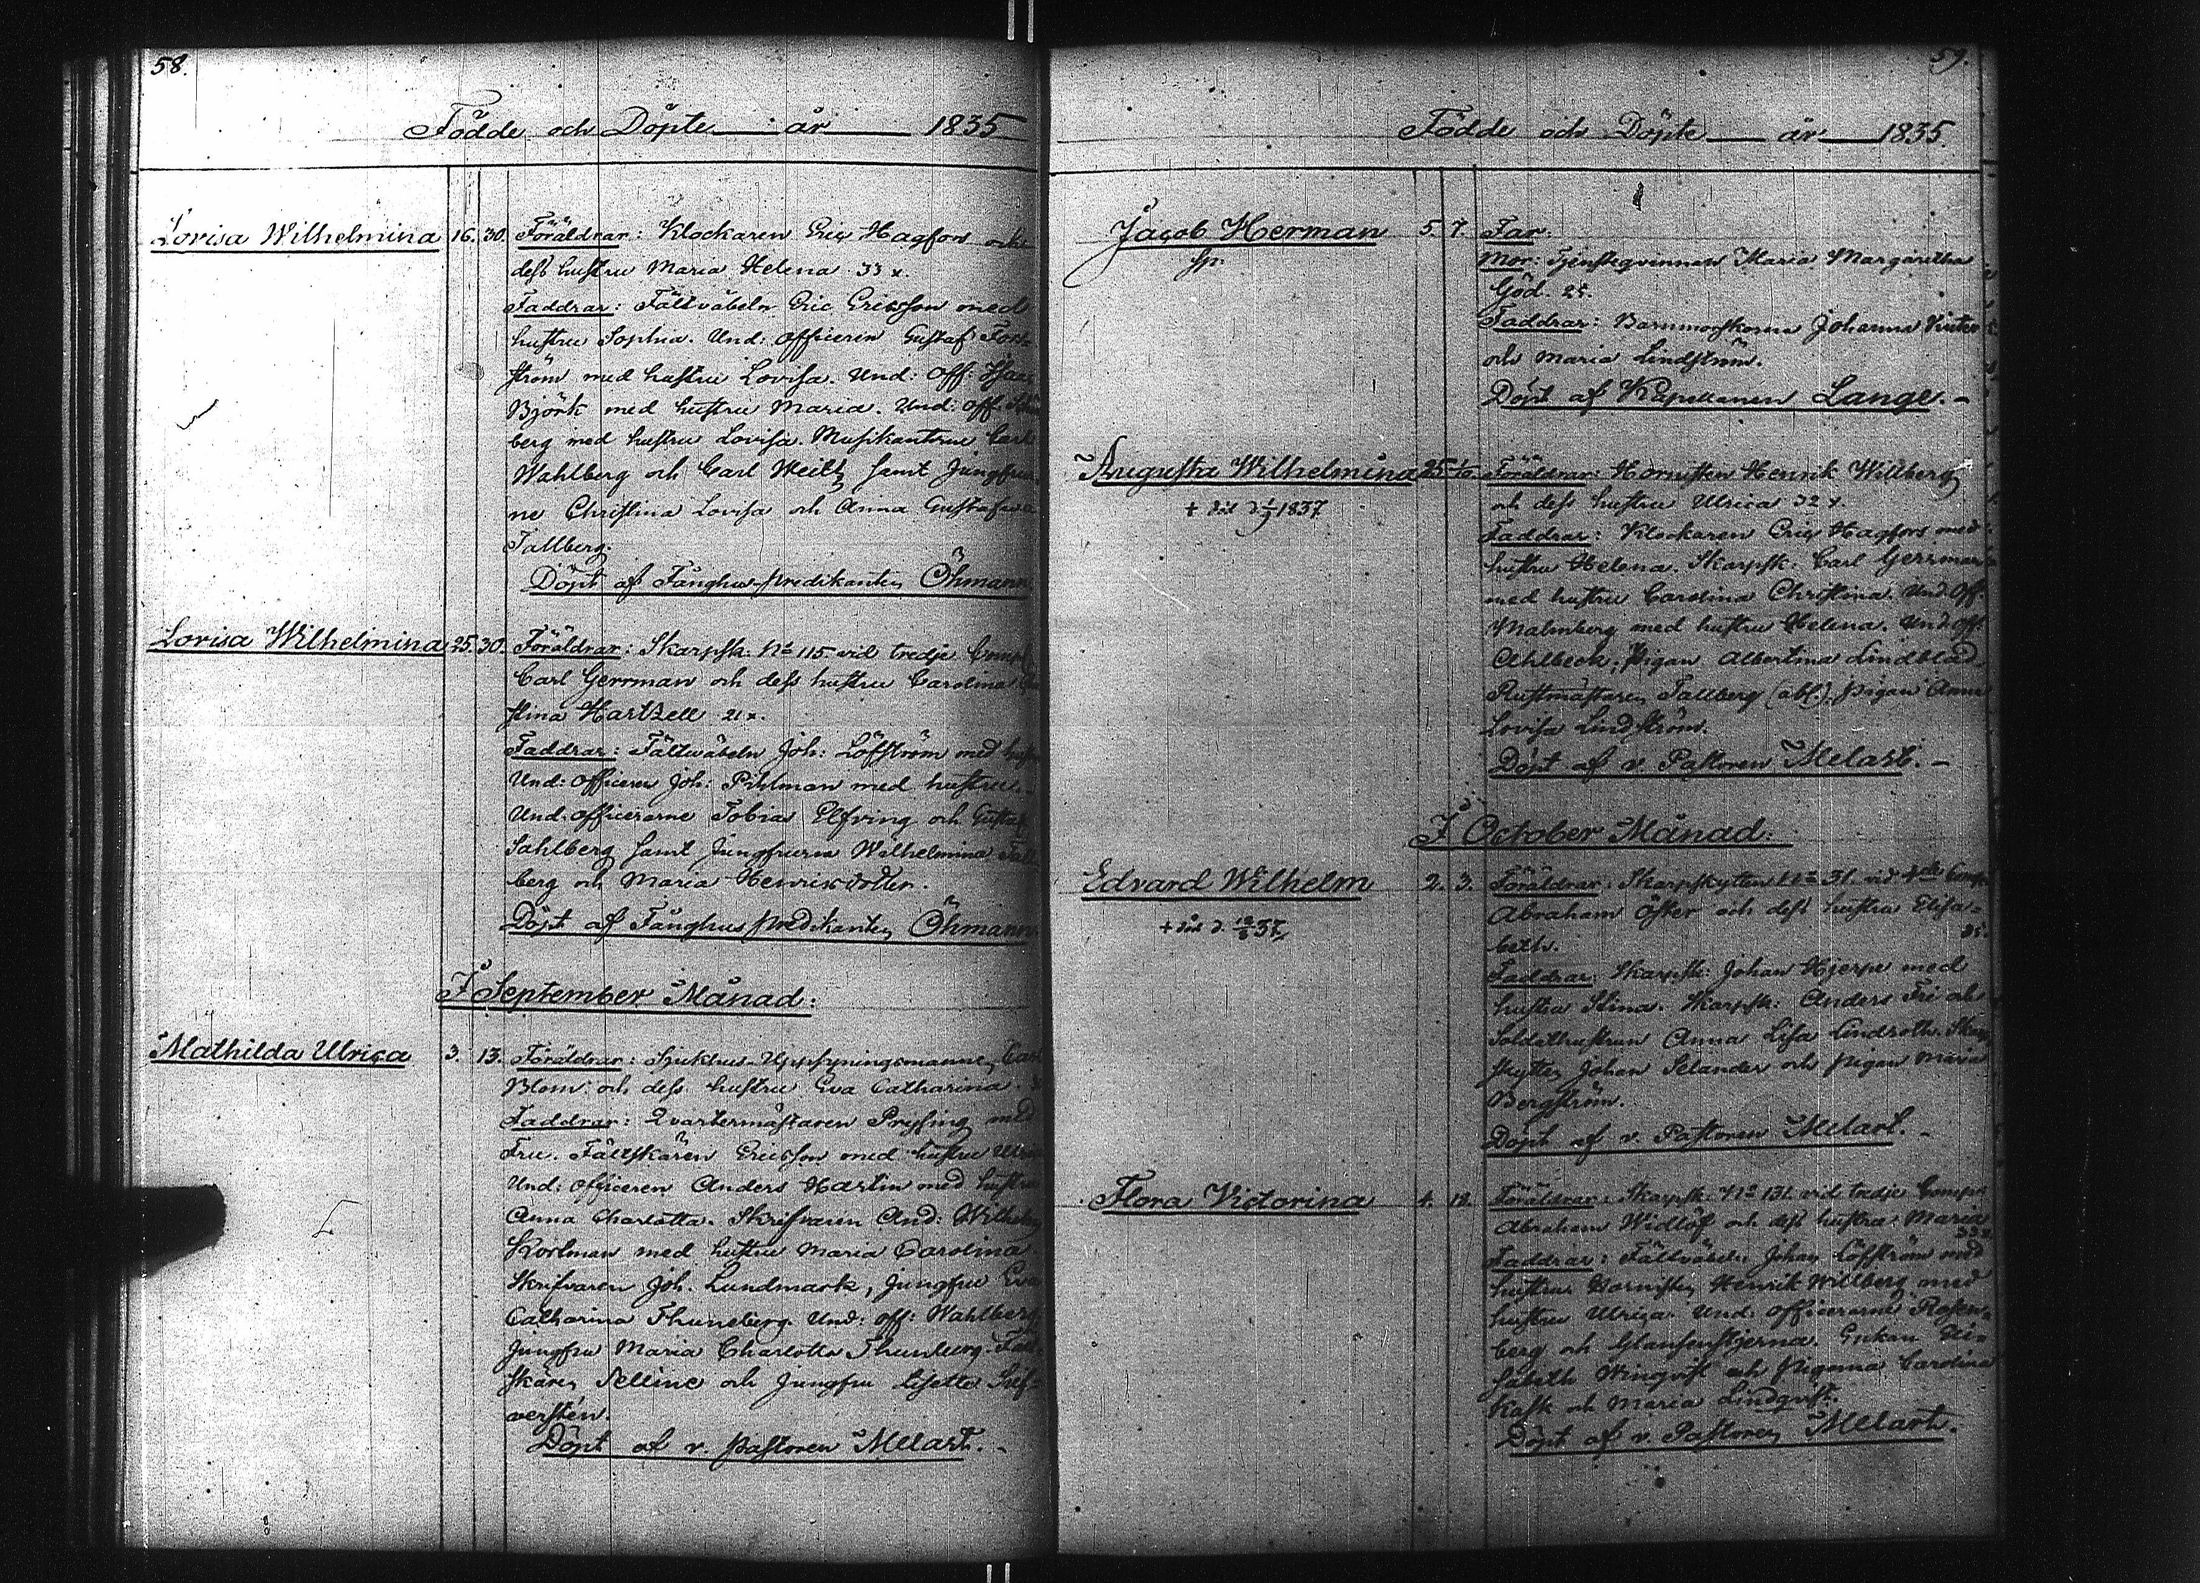 58.
Födde och Döpte år 1835
Lovisa Wilhelmina 16. 30. Föräldrar: Klockaren Eric Hagfors och
dess hustru Maria Helena 33
Faddrar: Fältväbeln Eric Ericsson med
hustru Sophia. Und: officeren Gustaf
ström med hustru Lovisa. Und: off:
Björk med hustru Maria. Und: off.
berg med hustru Lovisa. Musikanterne Carl
Wahlberg och Carl Weitz samt Jungfrur
ne Christina Lovisa och Anna Gustafva
Tallberg.
Döpt af Fånghus-predikanten Öhmann
Lovisa Wilhelmina 25. 30. Föräldrar: Skarpsk: No 115 vid tredje Comp:
Carl Gerrman och dess hustru Carolina
stina Hartzell 21
Faddrar: Fältväbeln Joh: Löfström med
Und: officeren Joh: Pihlman med hustru.
Und: officerarne Tobias Elfving och Gustaf
Sahlberg samt Jungfrurna Wilhelmina
berg och Maria Henricsdotter.
Döpt af Fånghuspredikanten Öhmann
I September Månad:
Mathilda Ulrica 3. 13. Föräldrar: Sjukhus-Uppsyningsmannen Carl
Blom och dess hustru Eva Catharina.
Faddrar: Qvartermästaren Prysing med
Fru. Fältskären Ericsson med hustru
Und: officeren Anders Hartin med hustru
Anna Charlotta. Skrifvaren And: Wilhelm
Kortman med hustru Maria Carolina
Skrifvaren Joh. Lundmark, jungfru Eva
Catharina Thuneberg. Und: off: Wahlberg
Jungfru Maria Charlotta Thunberg.
skären Selline och Jungfru Lisette
versten.
Döpt af v. pastoren Melart.
59.
Födde och Döpte år 1835.
Jacob Herman 5. 7. Far.
Mor: Tjensteqvinnan Maria Margaretha
Göd. 25.
Faddrar: Barnmorskorna Johanna
och Maria Lindström.
Döpt af Kapellanen Lange.
Augusta Wilhelmina 25. Föräldrar: Hornisten Henrik Willberg
+ död d 1/7 1837
och dess hustru Ulrica 32
Faddrar: Klockaren Eric Hagfors med
hustru Helena. Skarpsk: Carl Gerrman
med hustru Carolina Christina. Und: Off
Malmberg med hustru Helena. Und: off
Ahlbeck, Pigan Albertina Lindblad
Rustmästaren Tallberg (abs), pigan Anna
Lovisa Lindström.
Döpt af v. Pastoren Melart.
I October Månad.
Edvard Wilhelm 2. 3. Föräldrar: Skarpskytten No 31 vid Comp:
+ död d. 37
Abraham Öster och dess hustru Elisa-
beth.
Faddrar: Skarpsk: Johan Hjerpe med
hustru Stina. Skarpsk: Anders Fri och
Soldathustrun Anna Lisa Lindroth. Skarp
skytten Johan Selander och pigan Maria
Bergström.
Döpt af v. Pastoren Melart.
Flora Victorina 4. 18. Föräldrar: Skarpsk: No 131 vid tredje Comp:
Abraham Widlöf och dess hustru Maria
Faddrar: Fältväbeln Johan Löfström med
hustru. Hornisten Henrik Willberg med
hustru Ulrica. Und: officerarne Rosen-
berg och Glansenstjerna. Enkan Eli-
sabeth Winqvist och pigorna Carolina
Kask och Maria Lindqvist.
Döpt af v. Pastoren Melart.